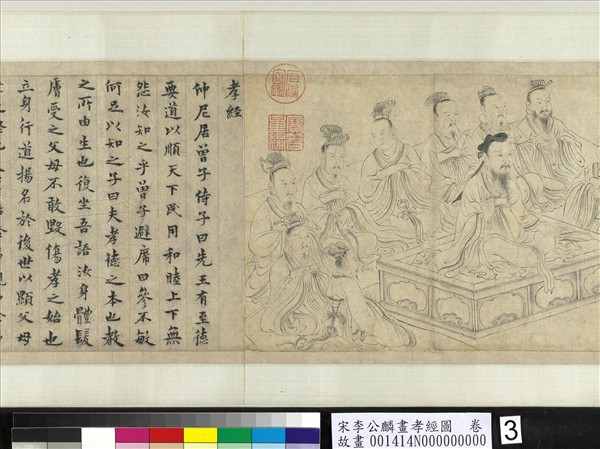 孝經
仲尼居曾子侍子曰先王有至德
要道以順天下民用和睦上下無
怨汝知之乎曾子避席曰參不敏
何足以知之子曰夫孝德之本也教
之所由生也復坐吾語汝身體髮
膚受之父母不敢毀傷孝之始也
立身行道揚名於後世以顯父母
宋李公麟畫孝經圖 卷
故畫 001414N000000000
3